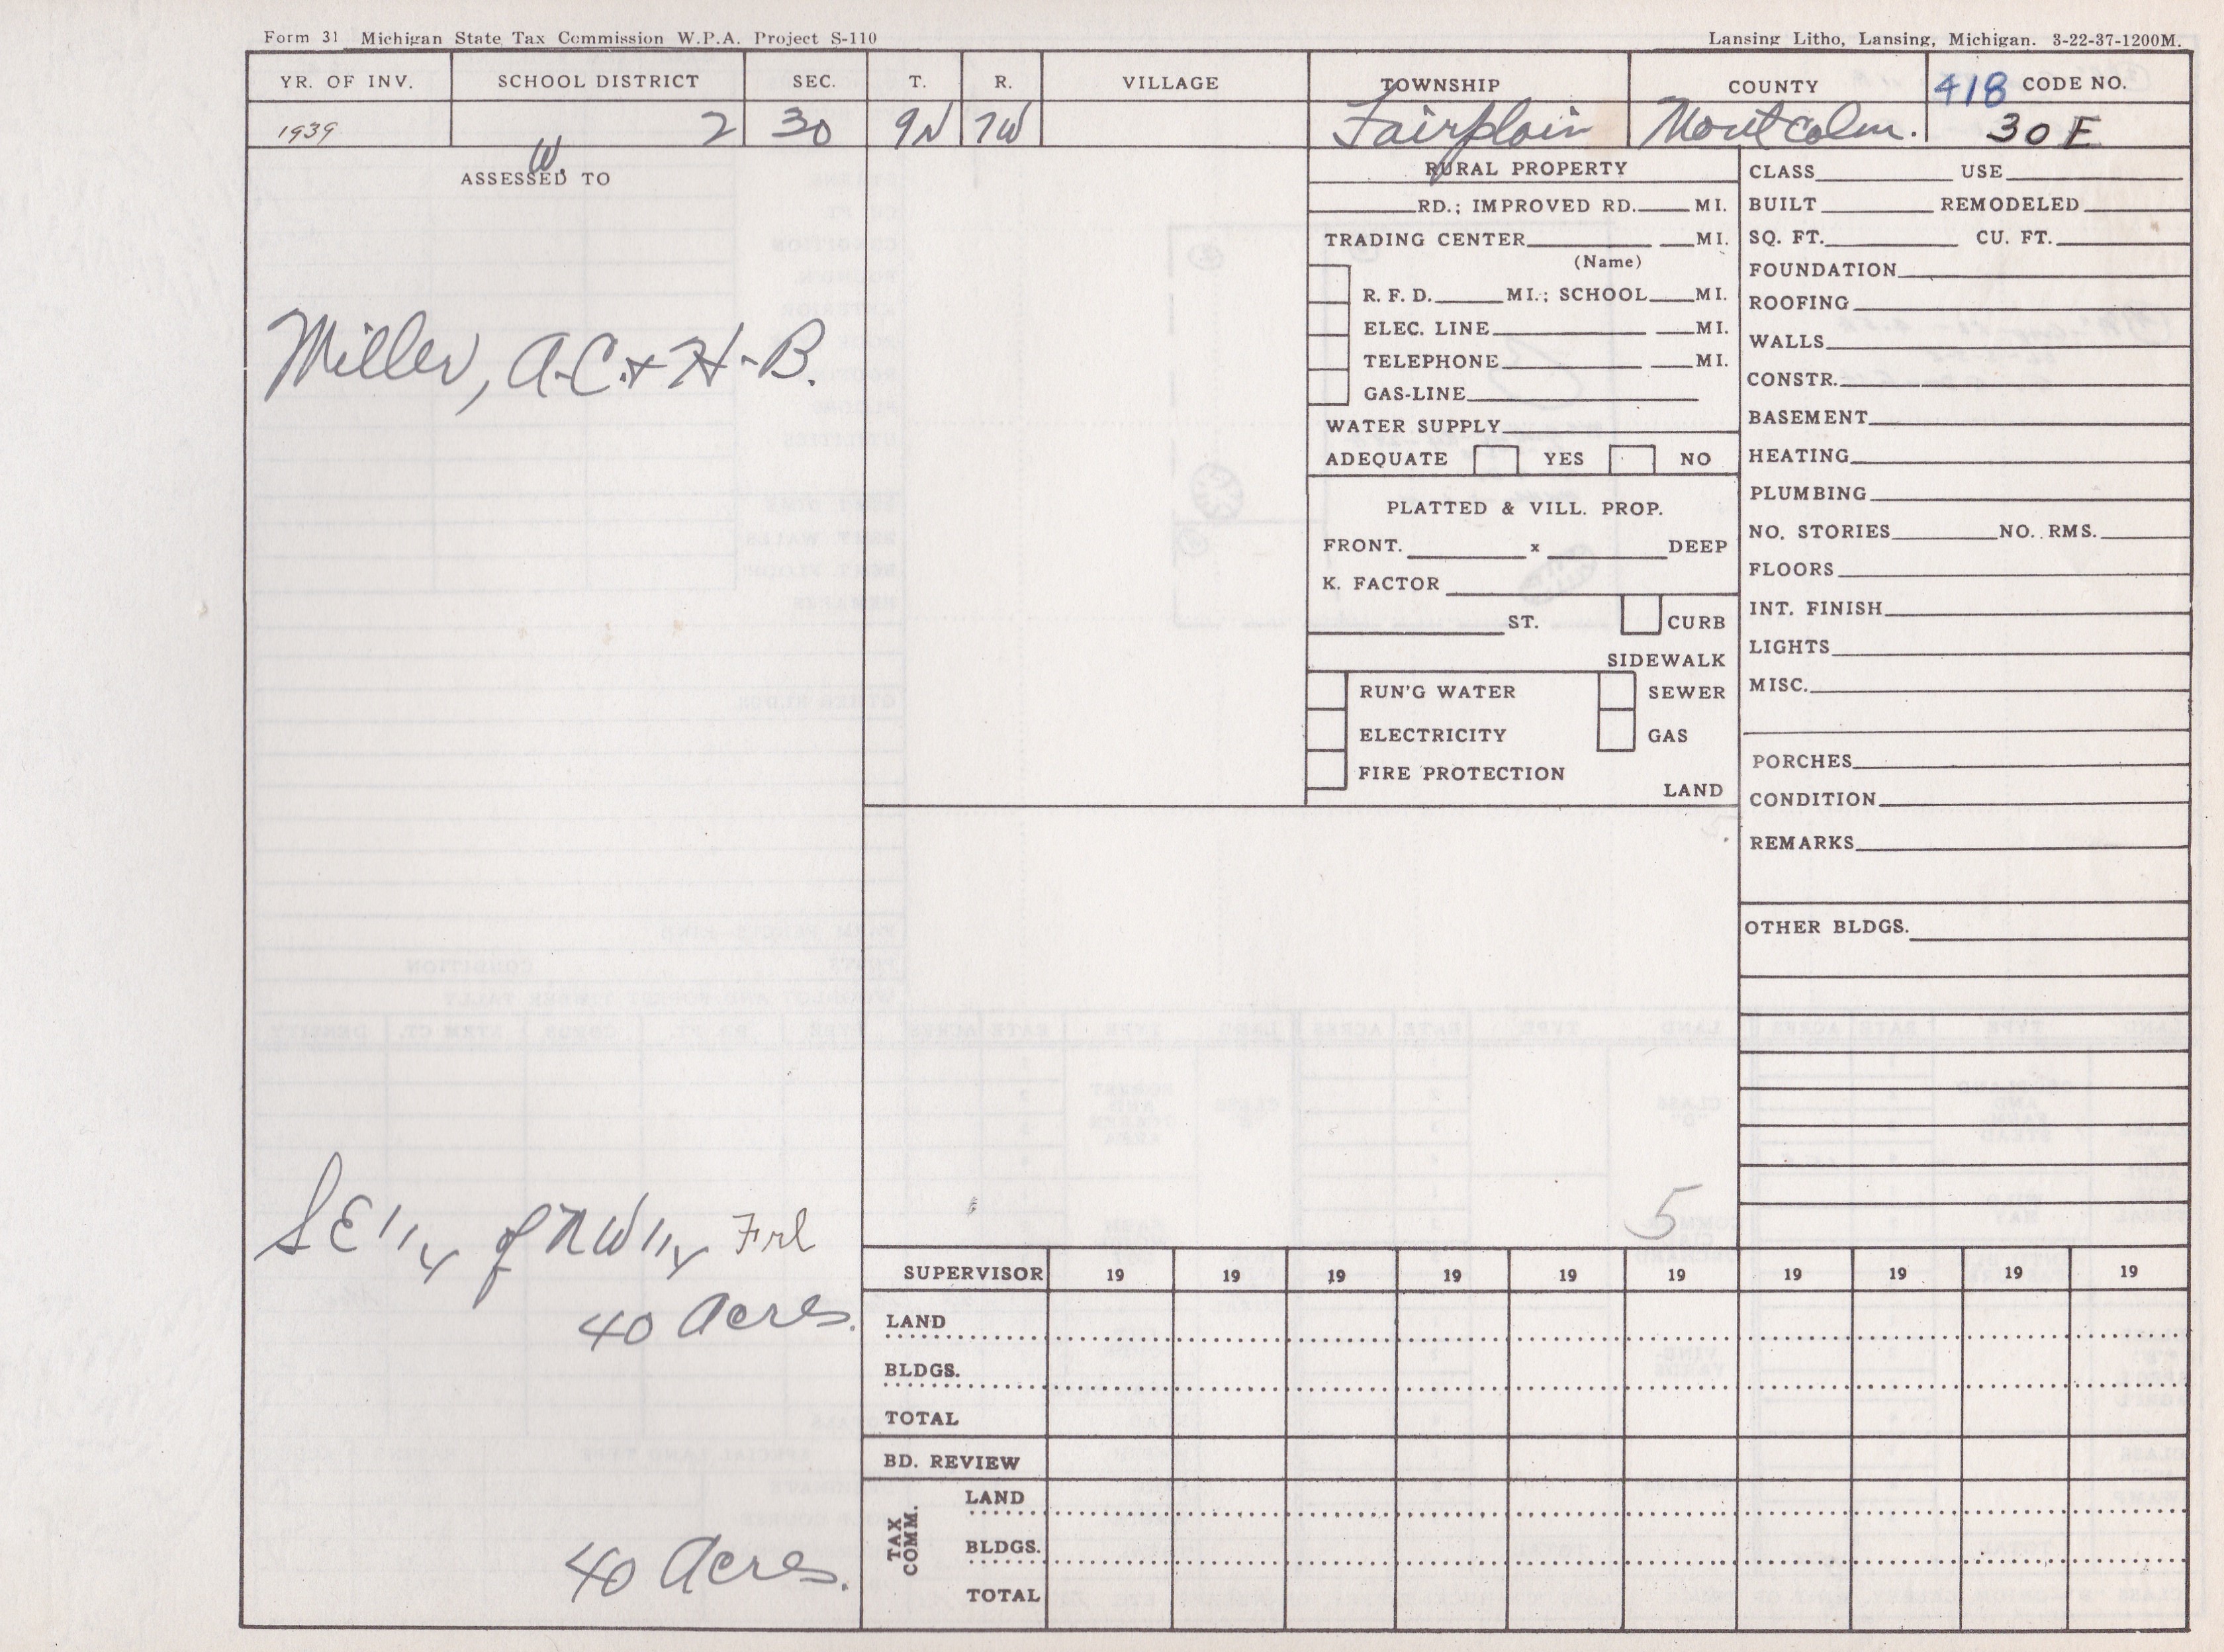 Form 31 Michigan State Tax Commission W.P.A. Project S-110
Lansing Litho, Lansing, Michigan. 3-22-37-1200M.
YR. OF INV. SCHOOL DISTRICT SEC. T. R. VILLAGE TOWNSHIP COUNTY 418 CODE NO.
1939 2 30 9N 7W Fairplain Montcalm. 30 E
W.
ASSESSED TO
Miller, A-C. + H-B.
SE 1/4 of NW 1/4 Frl
40 Acres.
40 Acres.
RURAL PROPERTY
RD.; IMPROVED RD. MI.
TRADING CENTER MI.
(Name)
R. F. D. MI.; SCHOOL MI.
ELEC. LINE MI.
TELEPHONE MI.
GAS-LINE
WATER SUPPLY
ADEQUATE YES NO
PLATTED & VILL. PROP.
FRONT. x DEEP
K. FACTOR
ST. CURB
SIDEWALK
RUN'G WATER SEWER
ELECTRICITY GAS
FIRE PROTECTION
LAND
5
CLASS USE
BUILT REMODELED
SQ. FT. CU. FT.
FOUNDATION
ROOFING
WALLS
CONSTR.
BASEMENT
HEATING
PLUMBING
NO. STORIES NO. RMS.
FLOORS
INT. FINISH
LIGHTS
MISC.
PORCHES
CONDITION
REMARKS
OTHER BLDGS.
SUPERVISOR 19 19 19 19 19 19 19 19 19 19
LAND
BLDGS.
TOTAL
BD. REVIEW
TAX COMM.
LAND
BLDGS.
TOTAL